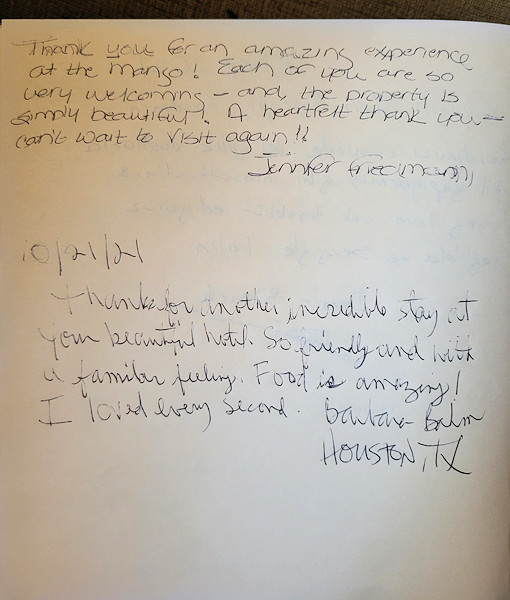 Thank you for an amazing experience
at the mango! Each of you are so
very welcoming - and the property is
simply beautiful. A heartfelt thank you -
can't wait to visit again!!
Jennifer Friedmann
10/21/21
Thanks for another incredible stay at
your beautiful hotel. So friendly and with
a familiar feeling. Food is amazing!
I loved every second. Barbara
HOUSTON, TX